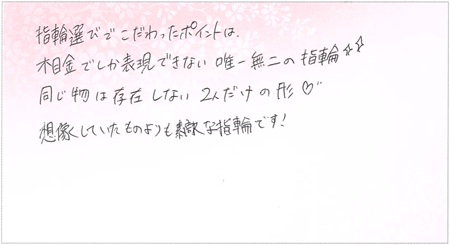 指輪選びでこだわったポイントは、
杢目金でしか表現できない唯一無二の指輪☆☆
同じ物は存在しない2人だけの形♡
想像していたものよりも素敵な指輪です!